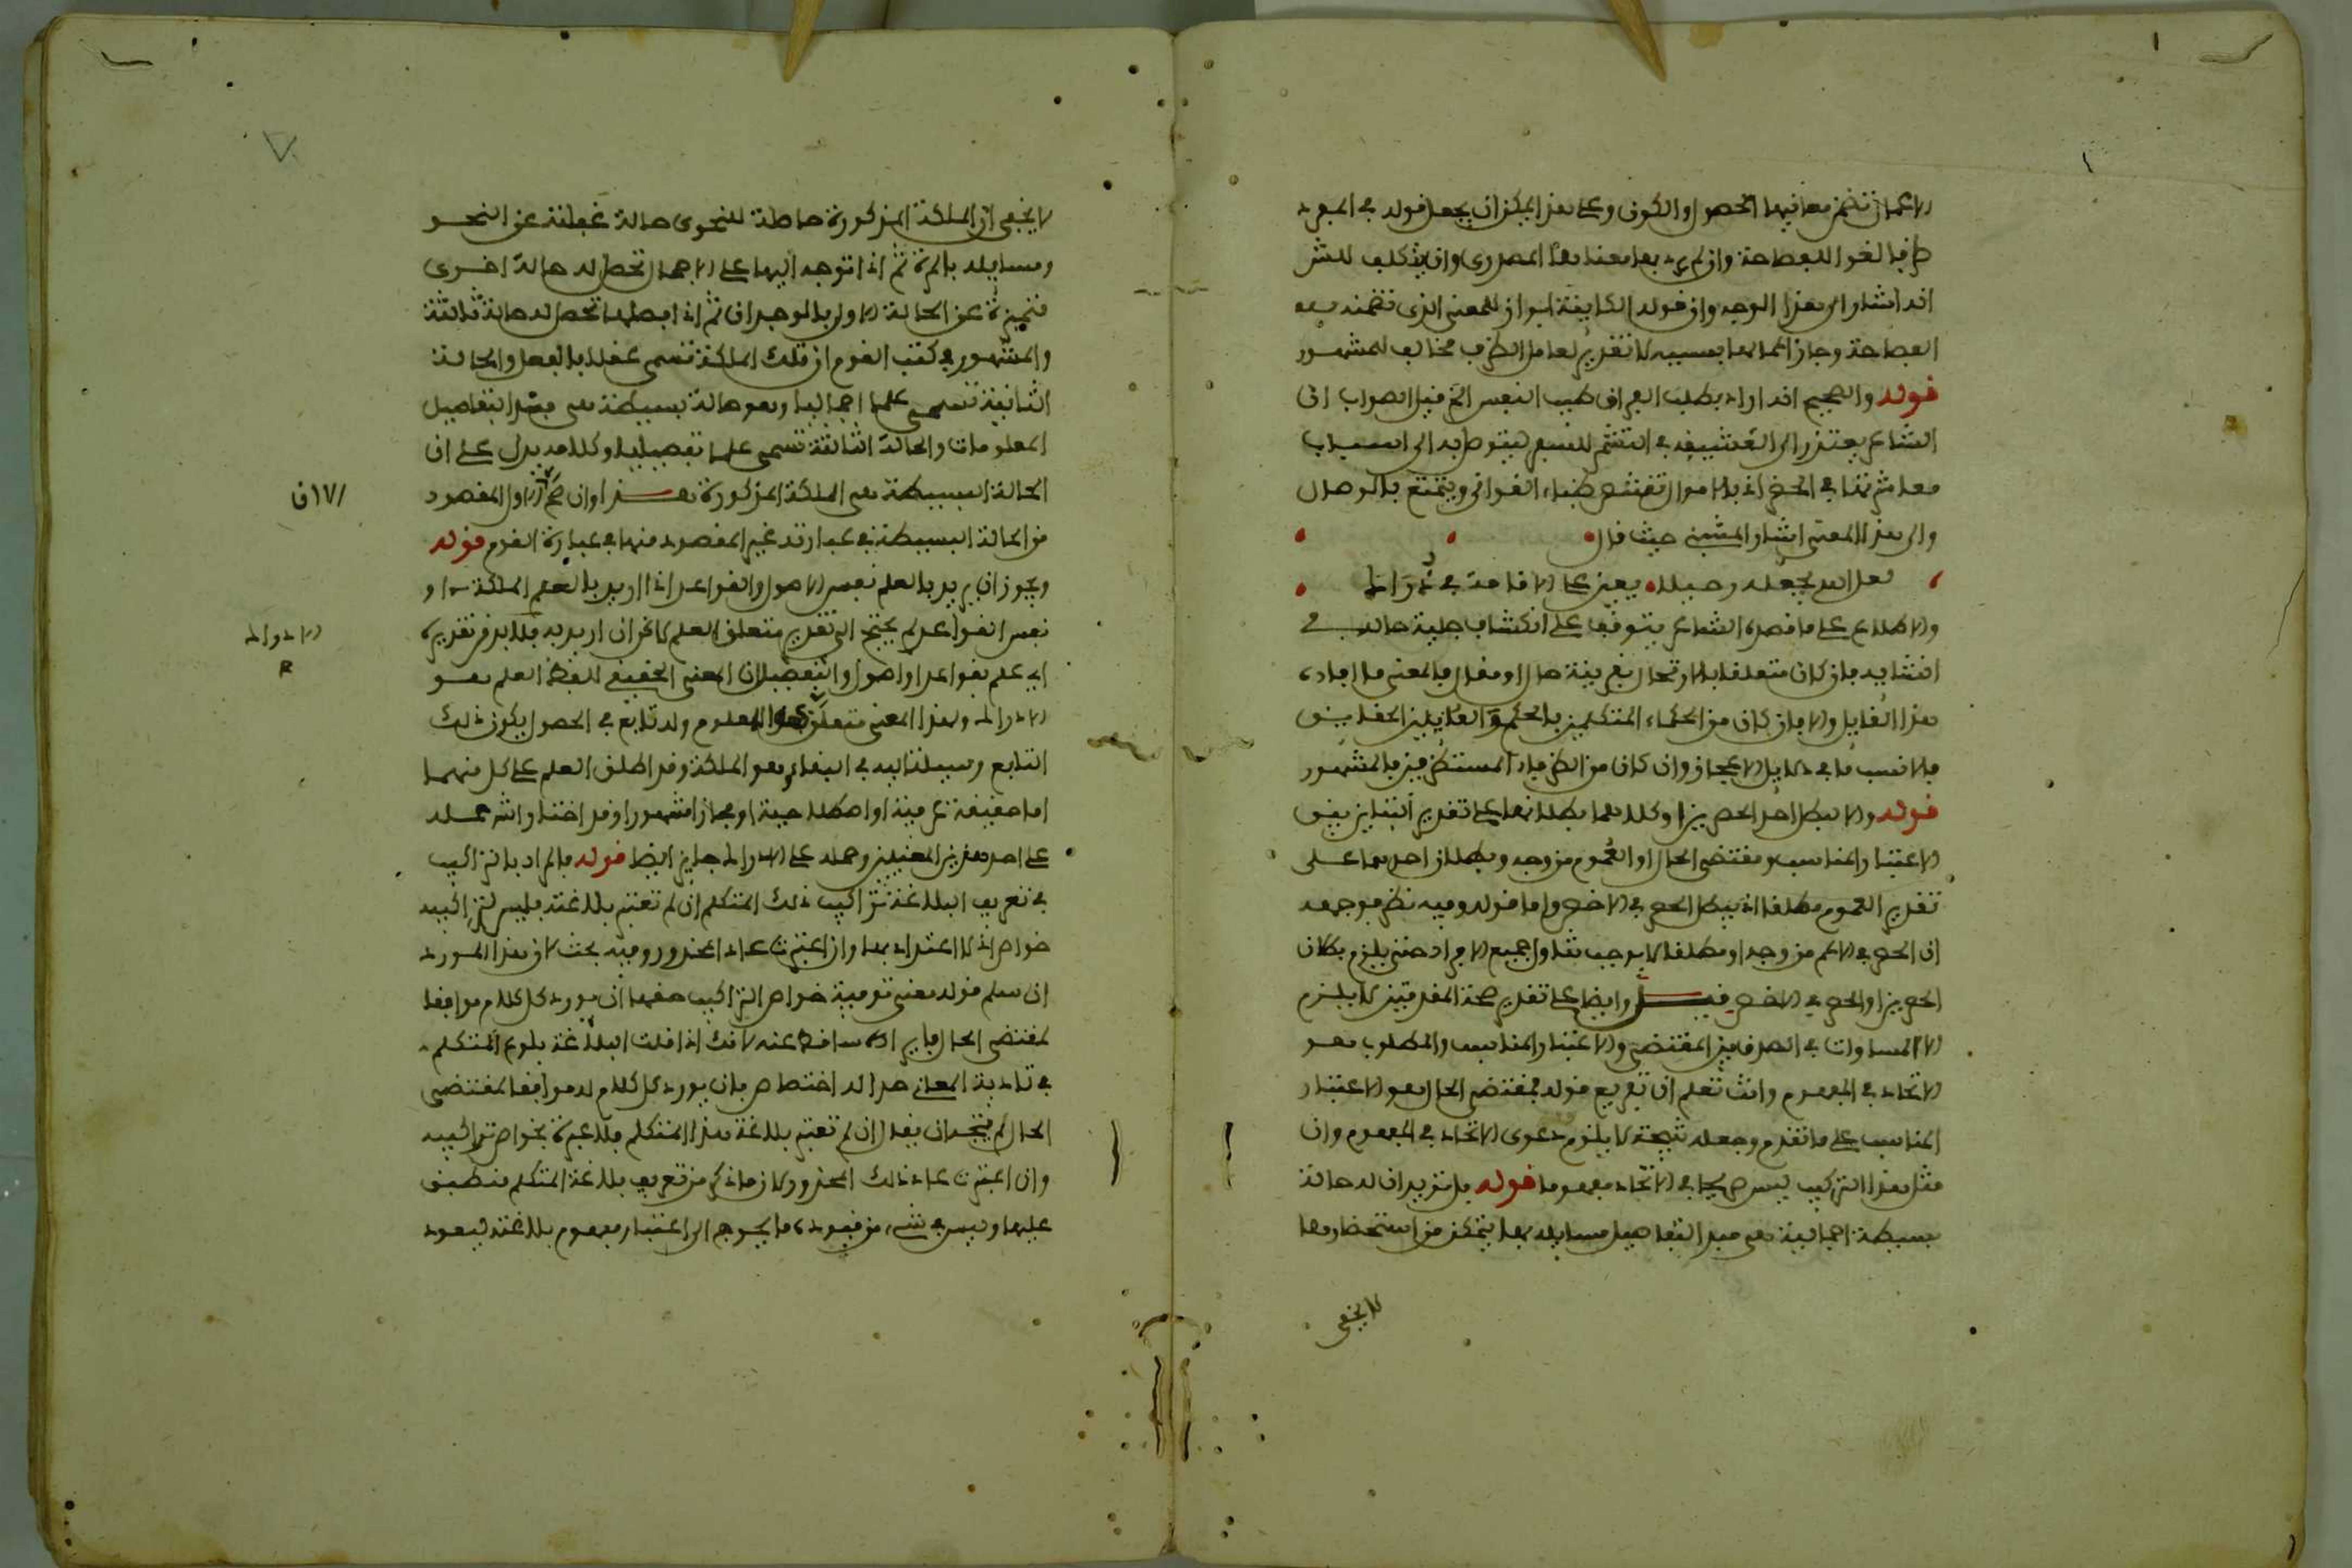 الاعمال تضمن معانيها الحصول والكون وعلى هذا يمكن ان يجعل قوله في المفرد
ظرفا لغوا للفصاحة وان لم يرد بها معناها المصدري وان يتكلف للش
انه اشار الى هذا الوجه وان قوله الكاينة ابراز للمعنى الذي تضمنه
الفصاحة وجاز اعمالها بسببه لا تقدير لعامل الظرف مخالف للمشهور
قوله والصحيح انه اراد بطلب الفراق طيب النفس الخ قيل الصواب ان
الشاعر يعتذر الى العشيقة في التشمر للسفر ليتوصل به الى اسباب
معاشرتها في الحضر اذ بالاموال تقتنص ظباء الغواني ويتمتع بالوصال
والى هذا المعنى اشار المتنبي حيث قال
لعل الله يجعله رحيلا يعين على الاقامة في ذراك
والاطلاع على ما قصده الشاعر يتوقف على انكشاف جلية حاله في
انشايه فان كان متعلقا بالارتحال بقرينة حال او مقال فالمعنى ما افاده
هذا القايل والا فان كان من الحكماء المتكلمين بالحكم والقايلين الحقايق
فالانسب ما في دلايل الاعجاز وان كان من الظرفاء المستظرفين فالمشهور
قوله والا لبطل احد الحصرين او كلاهما بطلانهما على تقدير التباين بين
الاعتبار المناسب ومقتضى الحال او العموم من وجه وبطلان احدهما على
تقدير العموم مطلقا اذ يبطل الحصر في الاخص واما قوله وفيه نظر فوجهه
ان الحصر في الاعم من وجه او مطلقا لا يوجب تناول جميع الافراد حتى يلزم بطلان
الحصرين او الحصر في الاخص قيل وايضا على تقدير صحة المقدمتين لا يلزم
الا المساوات في الصدق بين المقتضى والاعتبار المناسب والمطلوب هو
الاتحاد في المفهوم وانت تعلم ان تفريع قوله فمقتضى الحال هو الاعتبار
المناسب على ما تقدم وجعله نتيجة لا يلزم دعوى الاتحاد في المفهوم وان
مثل هذا التركيب ليس صريحا في الاتحاد مفهوما قوله بل نريد ان له حالة
بسيطة اجمالية هي مبدا لتفاصيل مسايله بها يتمكن من استحضارها
لا يخفى
لا يخفى ان الملكة المذكورة حاصلة للنحوي حالة غفلته عن النحو
ومسايله بالمرة ثم اذا توجه اليها على الاجمال تحصل له حالة اخرى
متميزة عن الحالة الاولى بالوجدان ثم اذا فصلها تحصل له حالة ثالثة
والمشهور في كتب القوم ان تلك الملكة تسمى عقلا بالفعل والحالة
الثانية تسمى علما اجماليا وهو حالة بسيطة هي مبدا لتفاصيل
المعلومات والحالة الثالثة تسمى علما تفصيليا وكلامه يدل على ان
الحالة البسيطة هي الملكة المذكورة هذا وان صح الاول المقصود
الا ان
من الحالة البسيطة في عبارته غير المقصود منها في عبارة القوم قوله
ويجوز ان يريد بالعلم نفس الاصول والقواعد اذا اريد بالعلم الملكة او
نفس القواعد لم يحتج الى تقدير متعلق العلم لاكن ان اريد به فلا بد من تقديره
الادراك
اي علم بقواعد او اصول والتفصيل ان المعنى الحقيقي للفظ العلم هو
الادراك ولهذا المعنى متعلق هو المعلوم وله تابع في الحصول يكون ذلك
التابع وسيلة اليه في البقاء وهو الملكة وقد اطلق العلم على كل منهما
اما حقيقة عرفية او اصطلاحية او مجازا مشهورا وقد اختار الش حمله
على احد هذين المعنيين وحمله على الادراك جايز ايضا قوله فالمراد بالتراكيب
في تعريف البلاغة تراكيب ذلك المتكلم ان لم تعتبر بلاغته فليس لتراكيبه
خواص اذ لا اعتداد بها وان اعتبرت عاد المحذور وفيه بحث لان هذا المورد
ان سلم قوله معنى توفية خواص التراكيب حقها ان يورد كل كلام موافقا
لمقتضى الحال فايراده ساقط عنه لانك اذا قلت البلاغة بلوغ المتكلم
في تادية المعاني حدا له اختصاص بان يورد كل كلام له موافقا لمقتضى
الحال لم يتجه ان يقال ان لم تعتبر بلاغة هذا المتكلم فلا عبرة بخواص تراكيبه
وان اعتبرت عاد ذلك المحذور لان ما ذكر من تعريف بلاغة المتكلم منطبق
عليها وليس في شيء من قيوده ما يحوج الى اعتبار مفهوم بلاغته ليعود